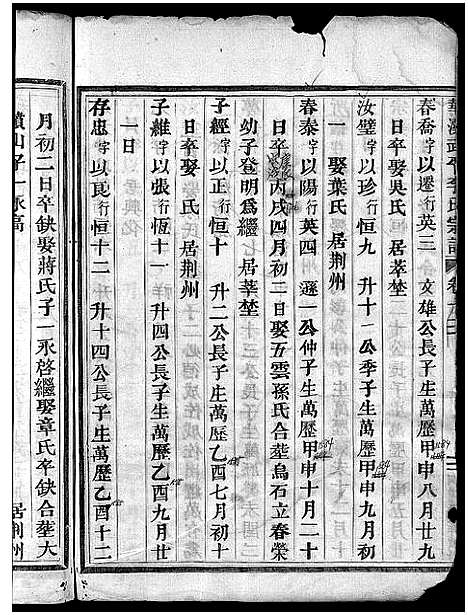 春喬字以遷行英三 文雄公長子生萬歷甲申八月廿九
日卒娶吳氏居莘埜
汝璧字以珍行恒九 升十一公季子生萬歷甲申九月初
一 娶葉氏 居荆州
春泰字以陽行英四 遜一公仲子生萬歷甲申十月二十
日卒 丙戌四月初二日娶五雲孫氏合塟烏石立春榮
幼子登明爲繼 居莘埜
子經字以正行恒十 升二公長子生萬歷乙酉七月初十
日卒娶 氏 居荆州
子維字以張行恆十一 升七公長子生萬歷乙酉九月廿
一日
存忠字以良行恒十二 升十四公長子生萬歷乙酉十二
月初二日卒缺娶蔣氏子一永啓繼娶章氏卒缺合塟大
墳山子一永高 居荆州
1584
1584